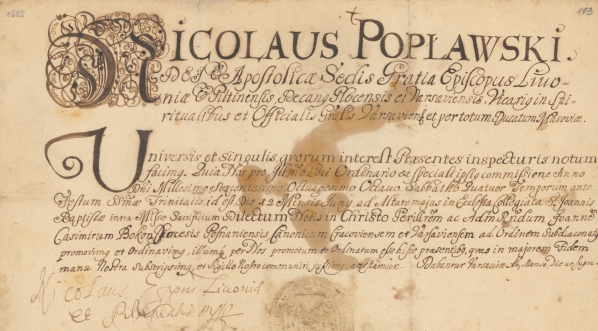 1688
103
NICOLAUS POPŁAWSKI.
DEI & Apostolicæ Sedis Gratia Episcopus Livo-
niæ & Piltinensis, Decanꝰ Plocensis et Varsaviensis, Vicariꝰ in Spi-
ritualibus et Officialis Gñlis Varsavień et per totum Ducatum Masoviæ.
Universis et singulis quorum interest Præsentes inspecturis notum
facimꝰ. Quia Nos pro Loci Ordinario ex speciali ipsiꝰ commissione Anno
Dñi Millesimo Sexcentesimo Octuagesimo Octavo Sabbatho Quatuor Temporum ante
Festum SSmæ Trinitatis id est Die 12 Mensis Juny, ad Altare majus in Ecclesia Collegiata S. Joannis
Baptistæ intra Missæ Sacrificium Dilectum Nobis in Christo ac Joannē
Casimirum Bokon Posnaniensis Canonicum Cracoviensem et Varsaviensem ad Ordinem
et Ordinavimꝰ, illumqꝫ per Nos promotum et Ordinatum esse hisce præsentibꝰ, quas in majorem Fidem
manu Nostra Subscripsimꝰ, et Sigillo Nostro communiri attestamur. Dabantur Varsaviæ Aõ, Mense, Die ut supra.
Nicolaus Eppus Livonię
et Piltinensis mpp